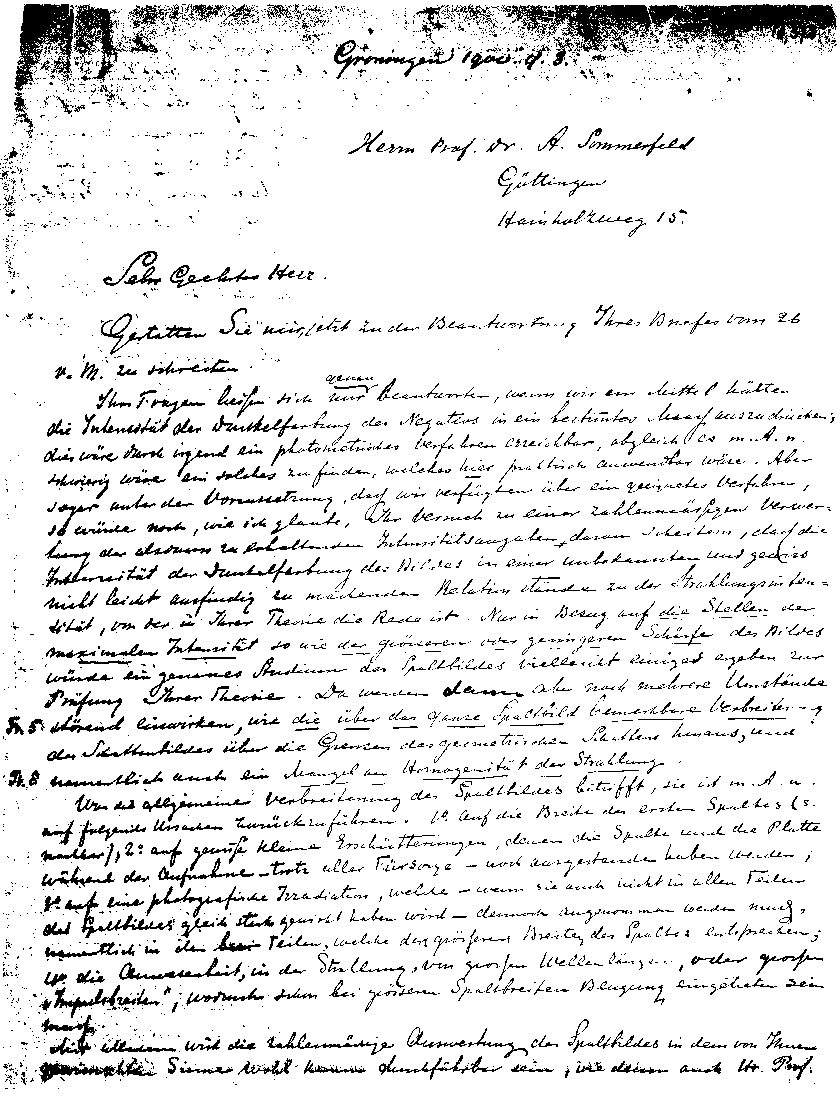 Groningen 1900. 4. 3.
Herrn Prof. Dr. A. Sommerfeld
Göttingen
Hainholzweg 15.
Sehr Geehrter Herr.
Gestatten Sie mir, jetzt zu der Beantwortung Ihres Briefes vom 26
v. M. zu schreiten.
genau
Ihre Fragen ließen sich nur beantworten, wenn wir ein Mittel hätten
die Intensität der Dunkelfärbung des Negativs in ein bestimtes Maass auszudrücken;
dies wäre durch irgend ein photometrisches Verfahren erreichbar, obgleich es m. A. n.
schwierig wäre ein solches zu finden, welches hier praktisch anwendbar wäre. Aber
sogar unter der Voraussetzung, dass wir verfügten über ein geeignetes Verfahren,
so würde noch, wie ich glaube, Ihr Versuch zu einer zahlenmässigen Verwer-
tung der alsdann zu erhaltenden Intensitätsangaben, daran scheitern, dass die
Intensität der Dunkelfärbung des Bildes in einer unbekannten und gewiss
nicht leicht ausfindig zu machenden Relation stände zu der Strahlungsinten-
sität, von der in Ihrer Theorie die Rede ist. Nur in Bezug auf die Stellen der
maximalen Intensität so wie der grösseren oder geringeren Schärfe des Bildes
würde ein genaues Studium des Spaltbildes vielleicht einiges ergeben zur
Prüfung Ihrer Theorie. Da werden dann aber noch mehrere Umstände
Fr. 5 störend einwirken, wie die über das ganze Spaltbild bemerkbare Verbreiterung
des Schattenbildes über die Grenzen des geometrischen Schattens hinaus, und
Fr. 8 namentlich auch ein Mangel an Homogenität der Strahlung.
Was die allgemeine Verbreiterung des Spaltbildes betrifft, sie ist m. A. n.
auf folgende Ursachen zurückzuführen. 1º auf die Breite des ersten Spaltes (s.
nachher), 2º auf gewisse kleine Erschütterungen, denen die Spalte und die Platte
während der Aufnahme – trotz aller Fürsorge – noch ausgestanden haben werden;
3º auf eine photografische Irradiation, welche – wenn sie auch nicht in allen Teilen
des Spaltbildes gleich stark gewirkt haben wird – dennoch angenommen werden muss,
namentlich in den Teilen, welche den grösseren Breiten des Spaltes entsprechen;
4º die Anwesenheit, in der Strahlung, von grossen Wellenlängen, oder grossen
„Impulsbreiten", wodurch schon bei grösseren Spaltbreiten Beugung eingetreten sein
muss.
wird die zahlenmässige Auswertung des Spaltbildes in dem von Ihnen
Sinne wohl kaum durchführbar sein, wie denn auch Hr. Prof.